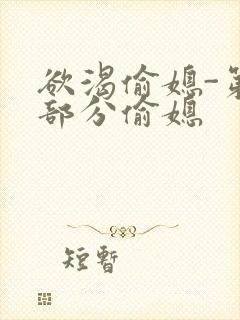 欲渴偷媳-第
部分偷媳
短暫